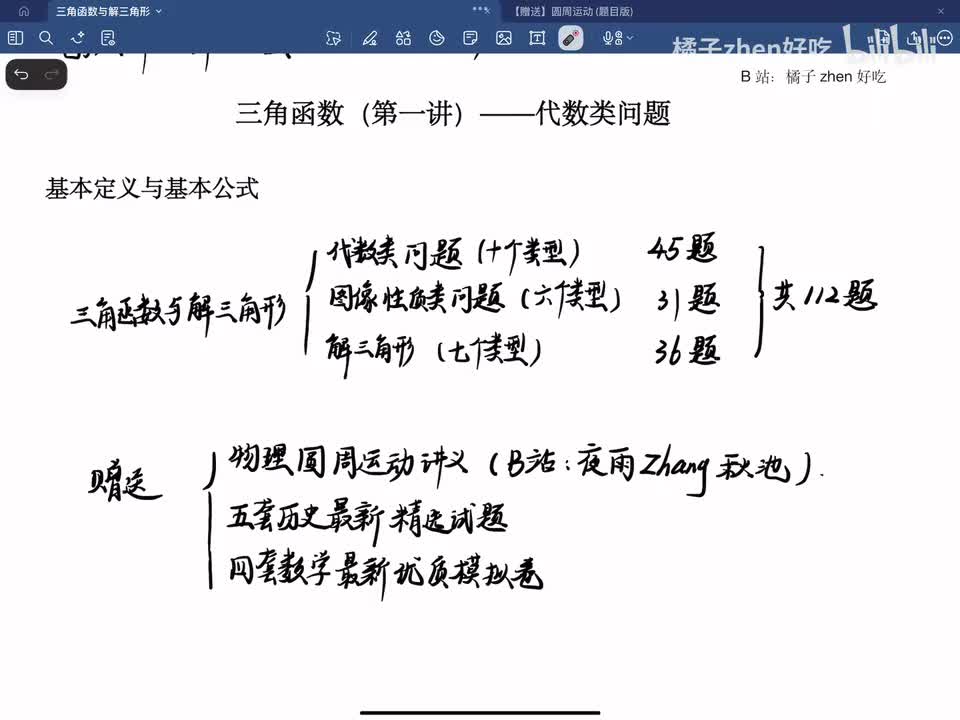 三角函数与解三角形
【赠送】圆周运动 (题目版)
橘子zhen好吃 bilibili
B 站：橘子 zhen 好吃
三角函数（第一讲）——代数类问题
基本定义与基本公式
代数类问题（十个类型） 45题
三角函数与解三角形 图像性质类问题（六个类型） 31题 共112题
解三角形（七个类型） 36题
物理圆周运动讲义（B站：夜雨Zhang秋池）.
赠送
五套历史最新精选试题
四套数学最新优质模拟卷